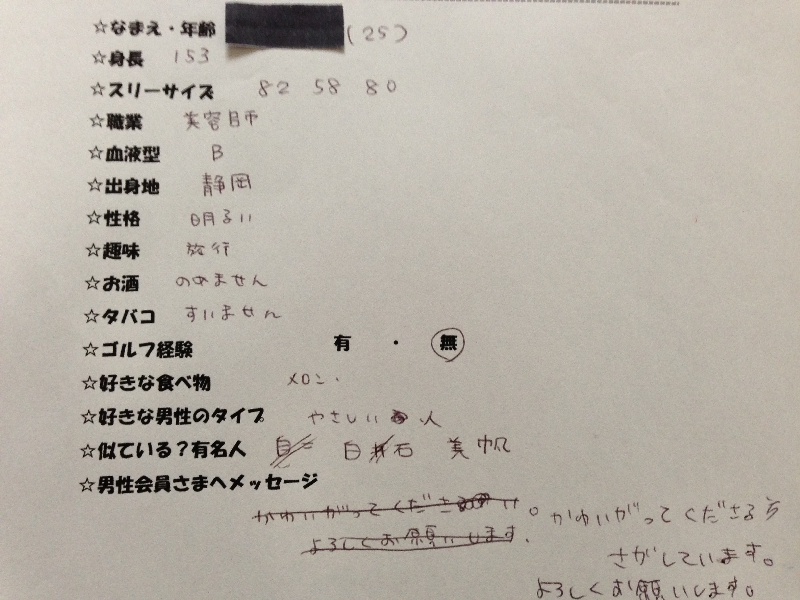 ☆なまえ・年齢 (25)
☆身長 153
☆スリーサイズ 82 58 80
☆職業 美容師
☆血液型 B
☆出身地 静岡
☆性格 明るい
☆趣味 旅行
☆お酒 のめません
☆タバコ すいません
☆ゴルフ経験 有 ・ 無
☆好きな食べ物 メロン.
☆好きな男性のタイプ やさしい人
☆似ている?有名人 白石 美帆
☆男性会員さまへメッセージ
かわいがってくださ い。かわいがってくださる
よろしくお願いします. さがしています。
よろしくお願いします。